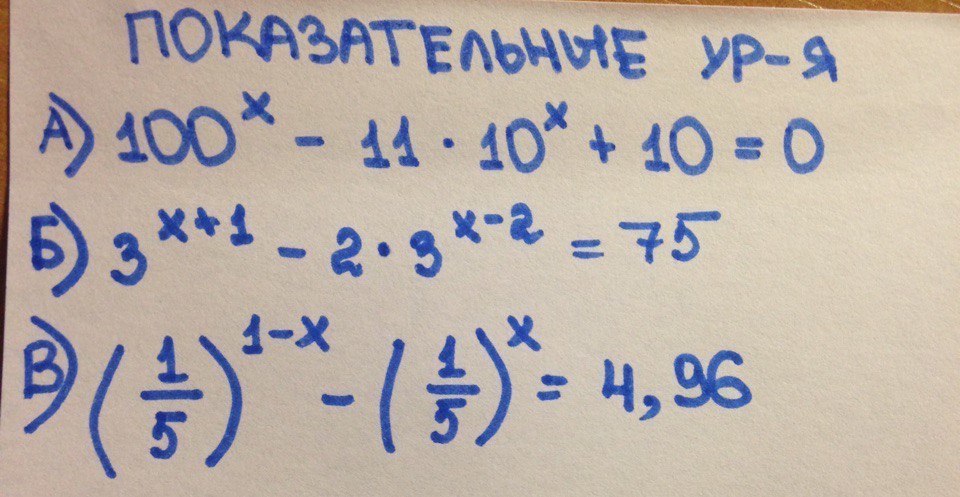 ПОКАЗАТЕЛЬНЫЕ УР-Я
А) 100^x - 11 · 10^x + 10 = 0
Б) 3^{x+1} - 2 · 3^{x-2} = 75
В) (1/5)^{1-x} - (1/5)^x = 4,96